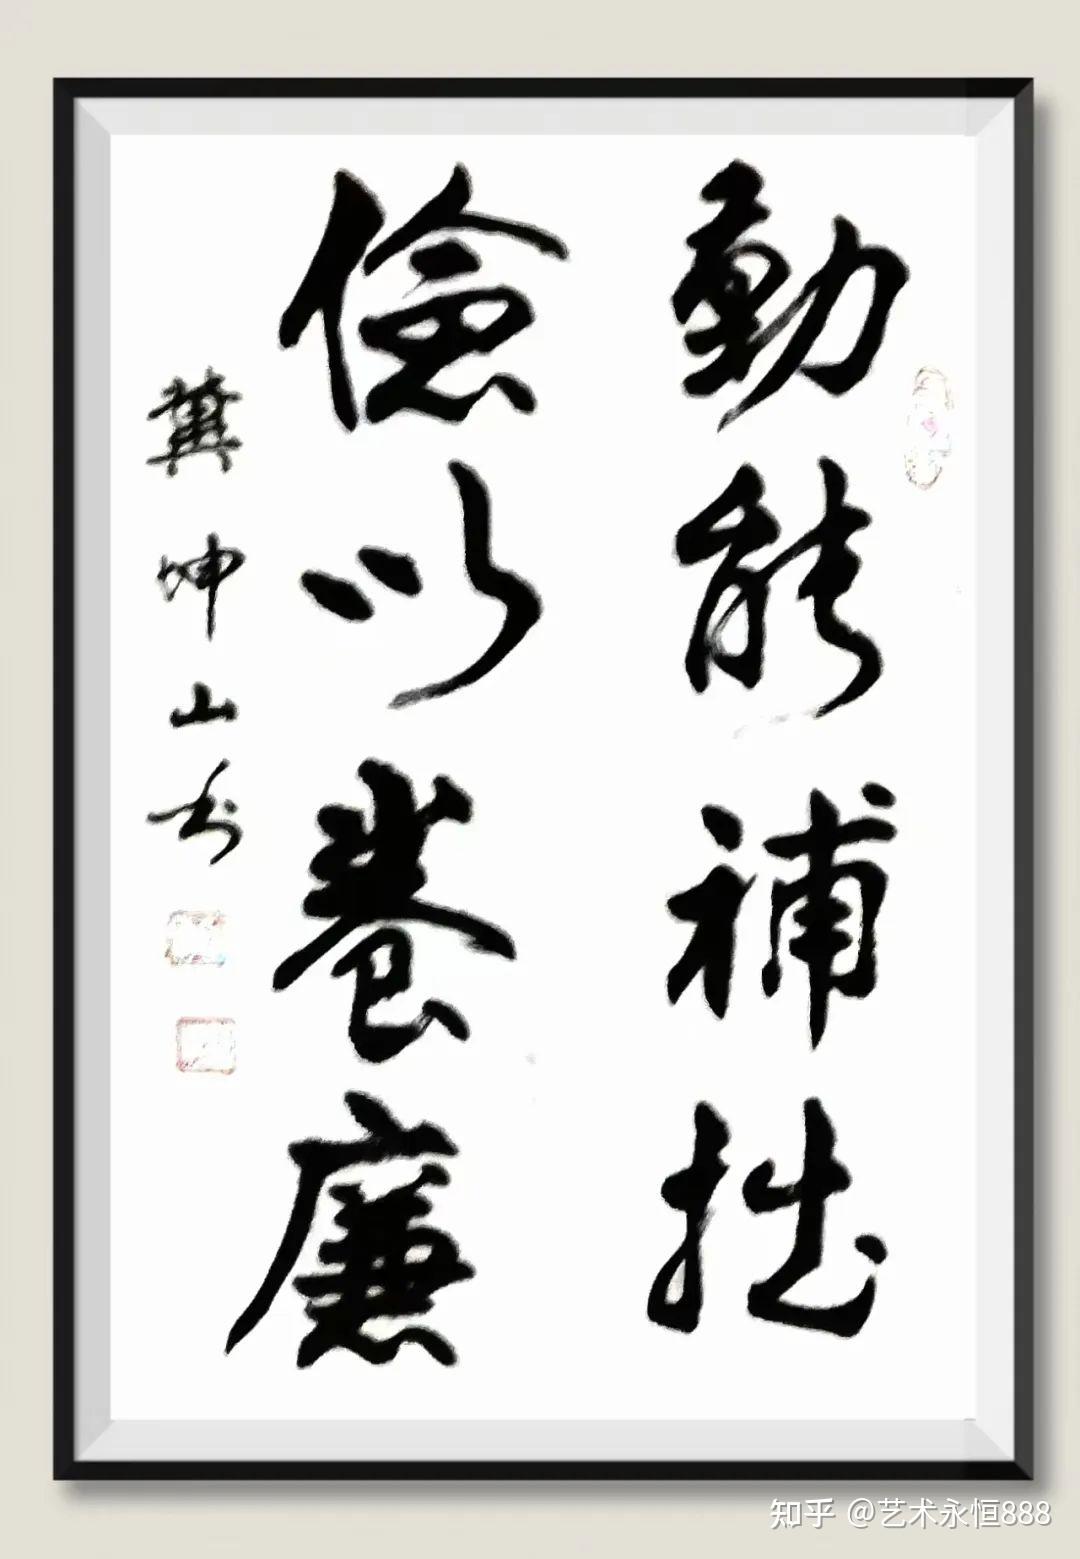 動能補拙
儉以養廉
冀坤山书
知乎 @艺术永恒888